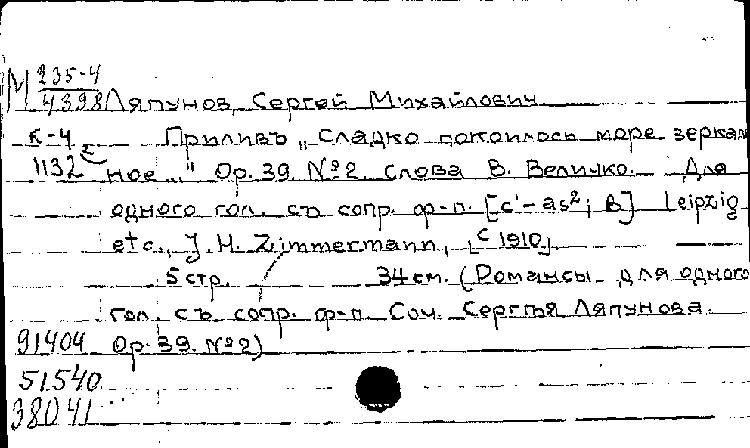 М 235-4
4398 Ляпунов, Сергей Михайлович
К-4 Приливъ „Сладко покоилось море зеркаль
1132 ное..." Ор. 39. №2. Слова В. Величко. Для
одного гол. съ сопр. ф-п. [c'-as²; B] Leipzig
etc., J. H. Zimmermann, [c 1910].
5 стр. 34 см. (Романсы для одного
гол. съ сопр. ф-п. Соч. Сергѣя Ляпунова.
91404 Ор. 39. №2)
51540
38041